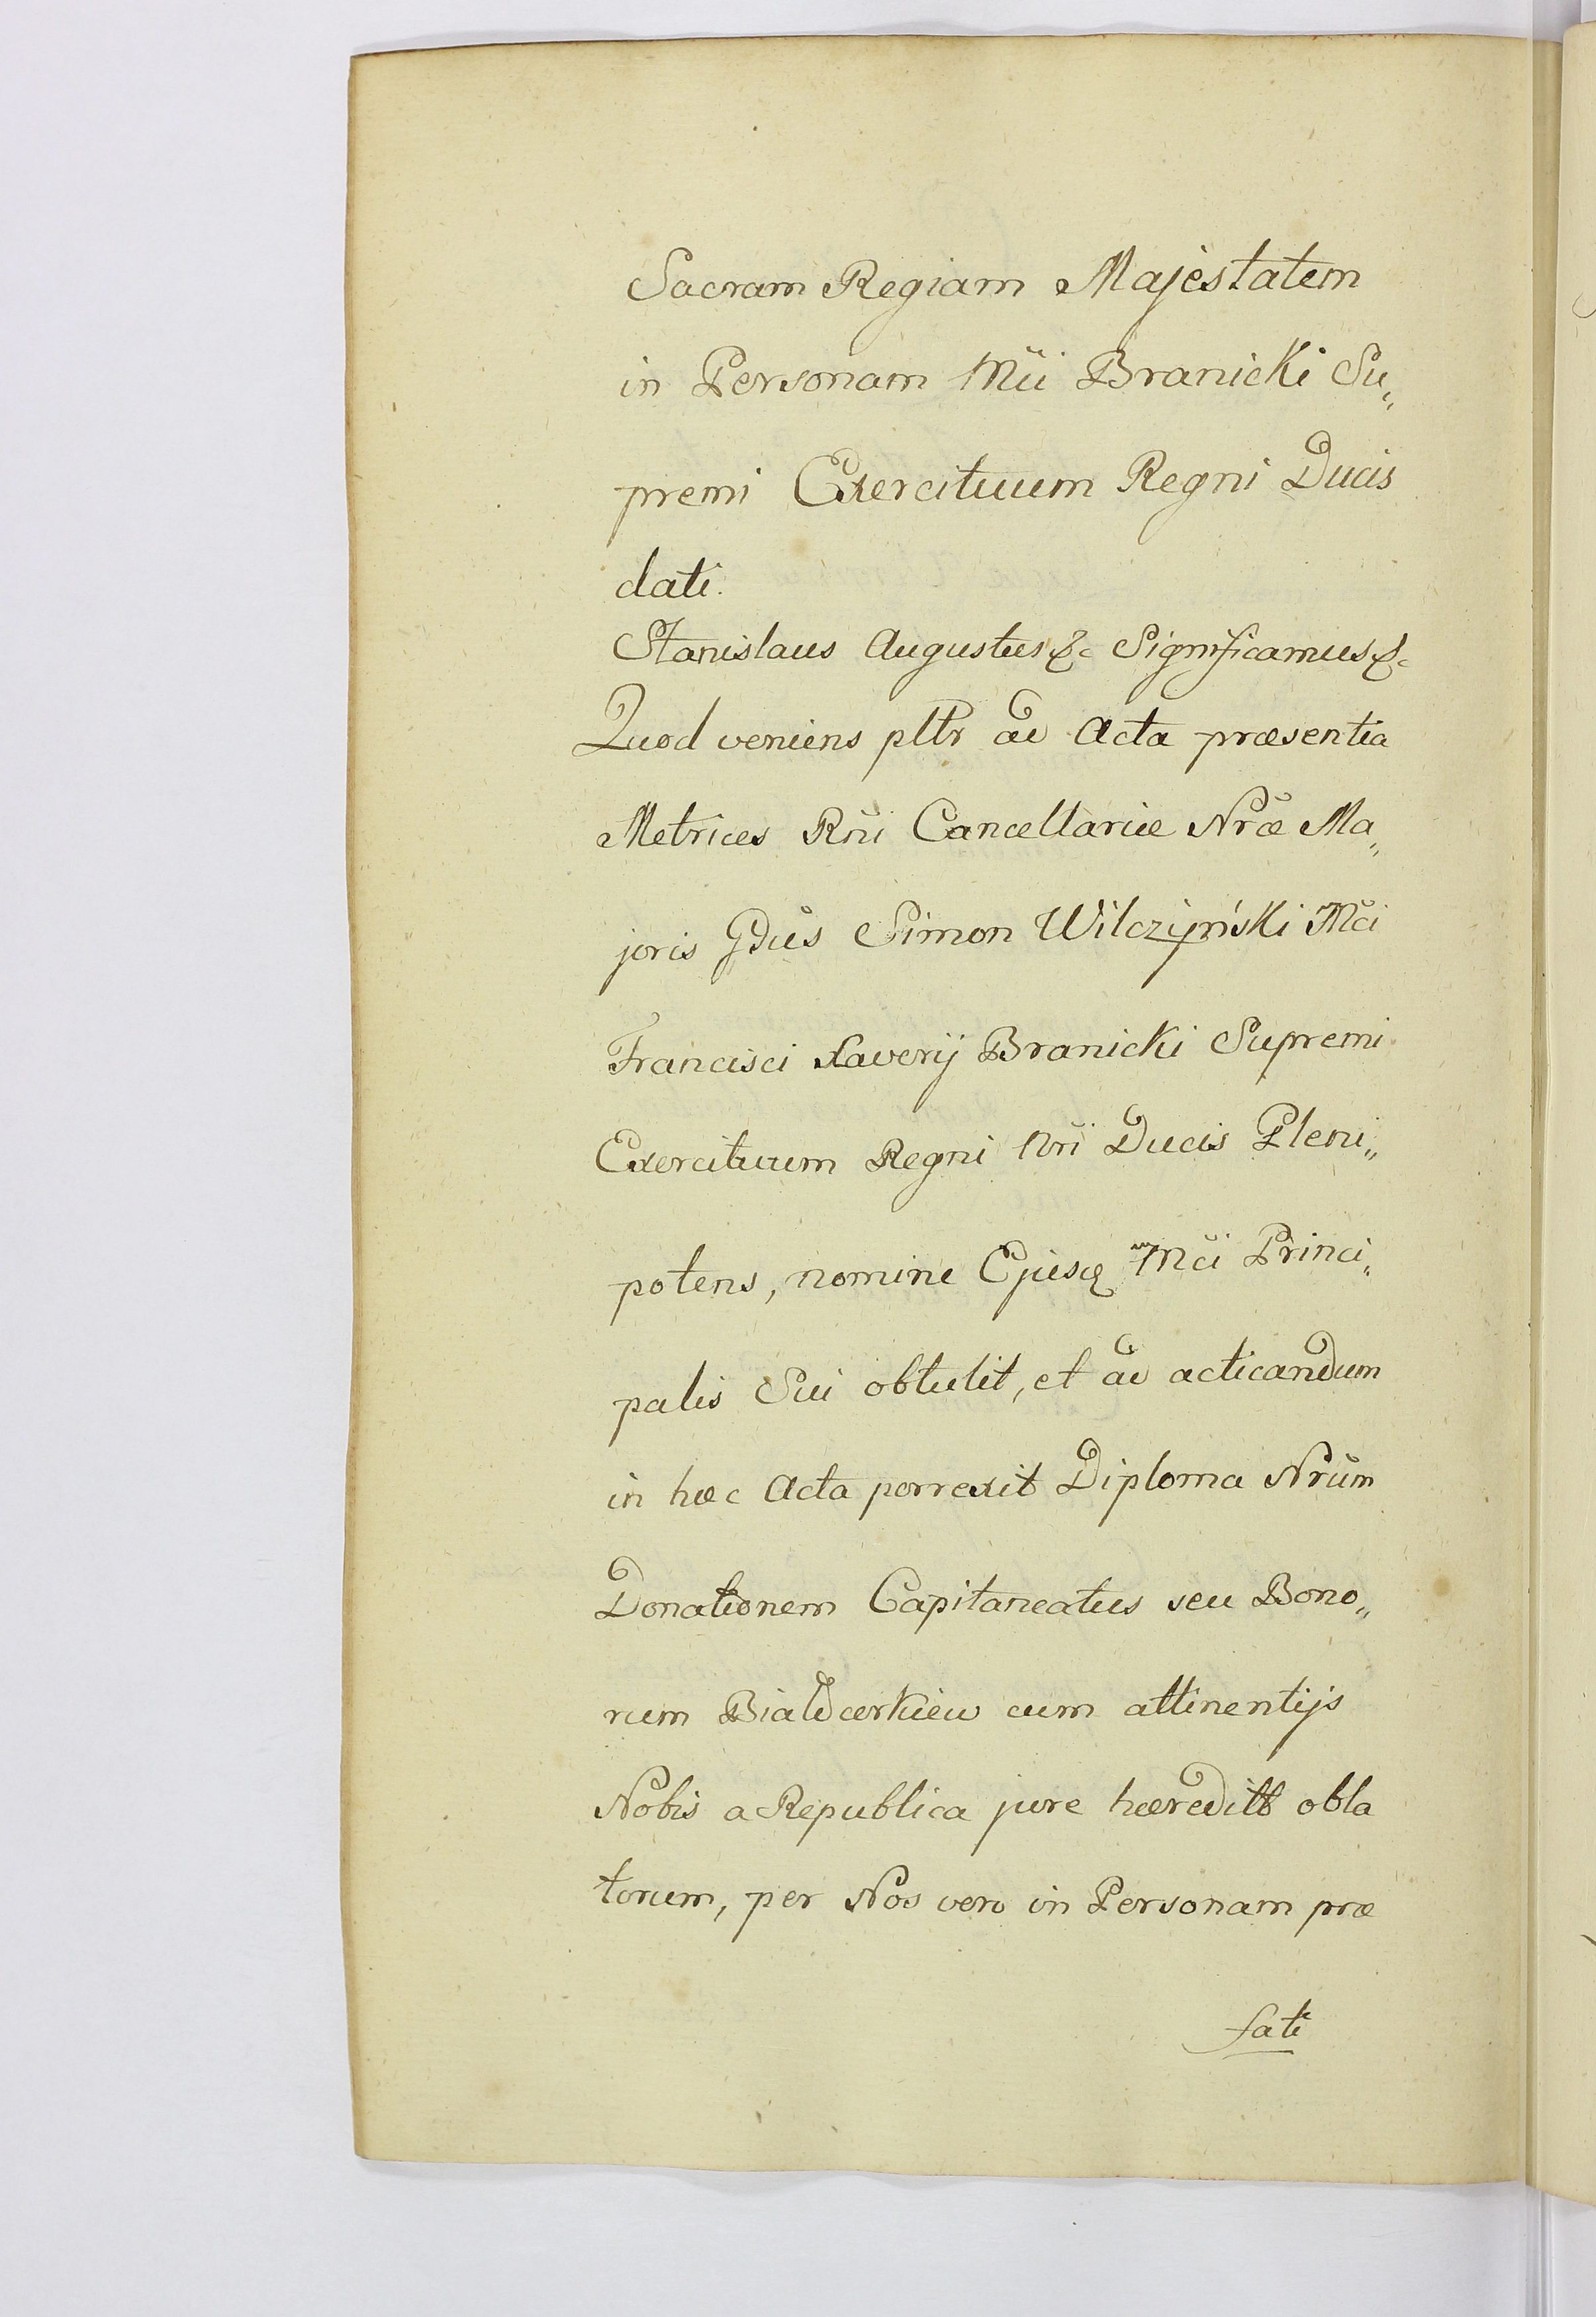 Sacram Regiam Majestatem
in Personam Mci Branicki Su„
premi Exercituum Regni Ducis
dati.
Stanislaus Augustus &c Significamus &c
Quod veniens pltr ad Acta præsentia
Metrices Rni Cancellariæ Nræ Ma„
joris Gdus Simon Wilczyński Mci
Francisci Xaverij Branicki Supremi
Exercituum Regni Nri Ducis Pleni„
potens, nomine Ejusq̃ m Mci Princi„
palis Sui obtulit, et ad acticandum
in hæc Acta porrexit Diploma Nrum
Donationem Capitaneatus seu Bono„
rum Białocerkiew cum attinentijs
Nobis a Republica jure hæreditt obla
torum, per Nos vero in Personam præ
fati